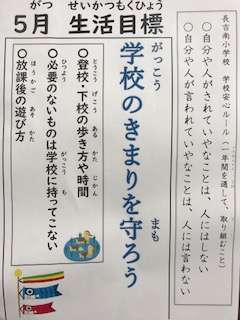 5月 生活目標
がつ せいかつもくひょう
長吉南小学校 学校安心ルール(一年間を通して、取り組むこと)
○自分や人がされていやなことは、人にはしない
○自分や人が言われていやなことは、人には言わない
学校のきまりを守ろう
がっこう まも
●登校、下校の歩き方や時間
とうこう げこう ある かた じかん
●必要のないものは学校に持ってこない
ひつよう がっこう も
●放課後の遊び方
ほうかご あそ かた